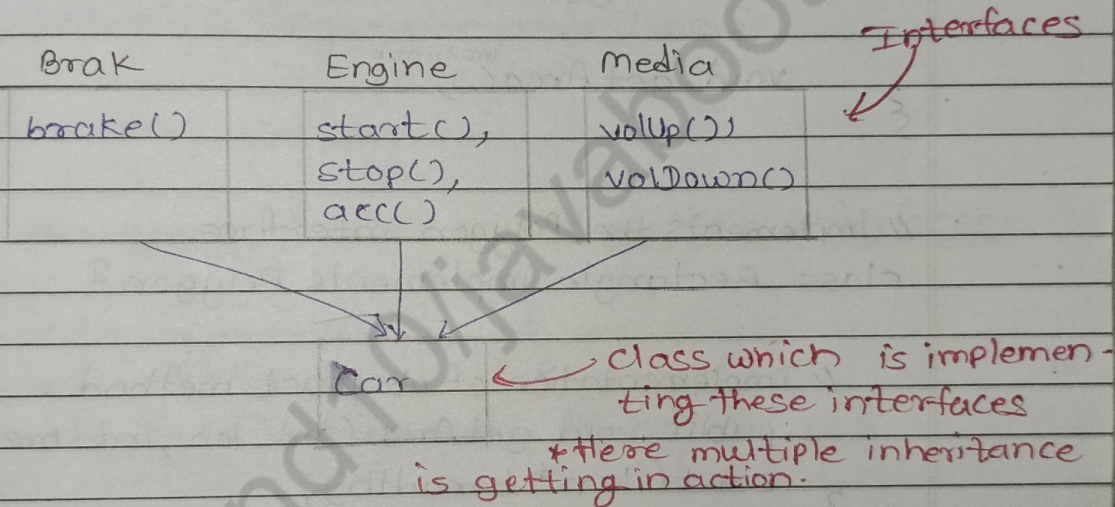 Interfaces
Brak Engine Media
brake() start(), volUp(),
stop(), volDown()
acc()
Car
class which is implemen-
ting these interfaces
*Here multiple inheritance
is getting in action.